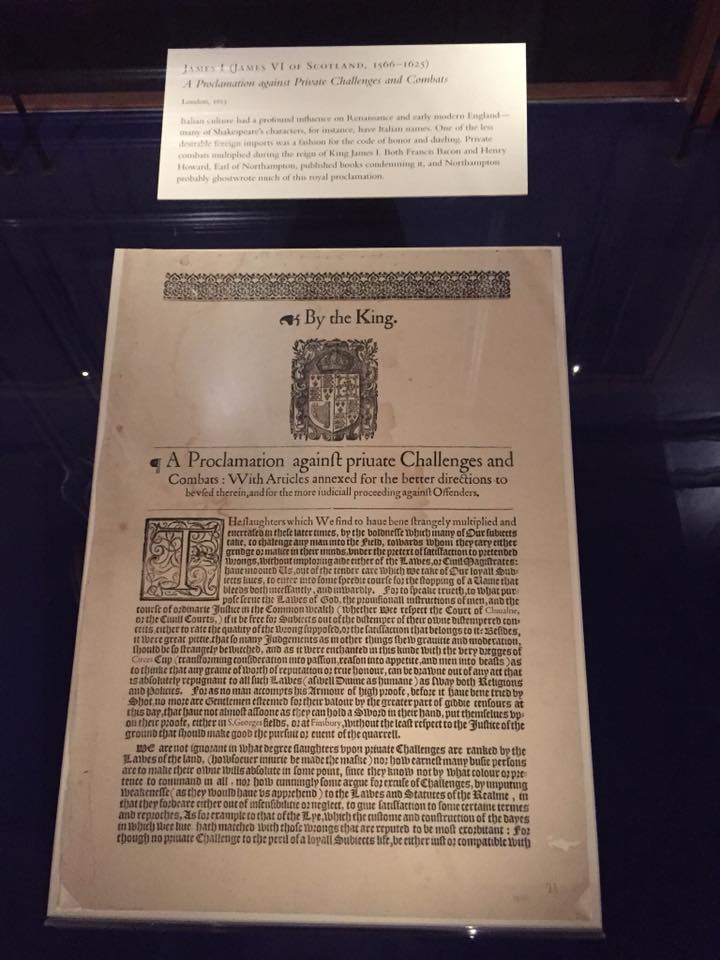 JAMES I (JAMES VI OF SCOTLAND, 1566–1625)
A Proclamation against Private Challenges and Combats
London, 1613
Italian culture had a profound influence on Renaissance and early modern England—
many of Shakespeare's characters, for instance, have Italian names. One of the less
desirable foreign imports was a fashion for the code of honor and dueling. Private
combats multiplied during the reign of King James I. Both Francis Bacon and Henry
Howard, Earl of Northampton, published books condemning it, and Northampton
probably ghostwrote much of this royal proclamation.
By the King.
¶ A Proclamation againſt priuate Challenges and
Combats : With Articles annexed for the better directions to
be vſed therein, and for the more iudiciall proceeding againſt Offenders.
THe ſlaughters which We find to haue bene ſtrangely multiplied and
encreaſed in theſe later times, by the boldneſſe which many of Our ſubiects
take, to challenge any man into the Field, towards whom they cary either
grudge or malice in their minds, vnder the pretext of ſatiſfaction to pretended
wrongs, without imploring aide either of the Lawes, or Ciuil Magiſtrates:
haue mooued Us, out of the tender care which We take of Our loyall Sub-
iects liues, to enter into ſome ſpeedie courſe for the ſtopping of a Uaine that
bleeds both inceſſantly, and inwardly. For to ſpeake trueth, to what pur-
poſe ſerue the Lawes of God, the prouiſionall inſtructions of men, and the
courſe of ordinarie Juſtice in the Common wealth (whether we reſpect the Court of Cheualrie,
or the Ciuill Courts,) if it be free for Subiects out of the diſtemper of their owne diſtempered con-
ceits, either to rate the quality of the wrong ſuppoſed, or the ſatiſfaction that belongs to it: Beſides,
it were great pittie, that ſo many Judgements as in other things ſhew grauitie and moderation,
ſhould be ſo ſtrangely bewitched, and as it were enchanted in this kinde with the very dregges of
Circes Cup (tranſforming conſideration into paſſion, reaſon into appetite, and men into beaſts) as
to thinke that any graine of worth of reputation or true honour, can be drawne out of any act that
is abſolutely repugnant to all ſuch Lawes (aſwell Diuine as humane) as ſway both Religions
and Policies. For as no man accompts his Armour of high proofe, before it haue bene tried by
Shot, no more are Gentlemen eſteemed for their valour by the greater part of giddie cenſours at
this day, that haue not almoſt aſſoone as they can hold a Sword in their hand, put themſelues vp-
on their proofe, either in S. Georges fields, or at Finsbury, without the leaſt reſpect to the Juſtice of the
ground that ſhould make good the purſuit or euent of the quarrell.
We are not ignorant in what degree ſlaughters vpon priuate Challenges are ranked by the
Lawes of the land, (howſoeuer iniurie be made the maſke) nor how earneſt many buſie perſons
are to make their owne wills abſolute in ſome point, ſince they know not by what colour or pre-
tence to command in all, nor how cunningly ſome argue for excuſe of Challenges, by imputing
weakeneſſe (as they would haue vs apprehend) to the Lawes and Statutes of the Realme, in
that they forbeare either out of inſenſibilitie or neglect, to giue ſatiſfaction to ſome certaine termes
and reproches, As for example to that of the Lye, which the cuſtome and conſtruction of the dayes
in which wee liue hath matched with thoſe wrongs that are reputed to be moſt exorbitant : For
though no priuate Challenge to the peril of a loyall Subiects life, be either iuſt or compatible with